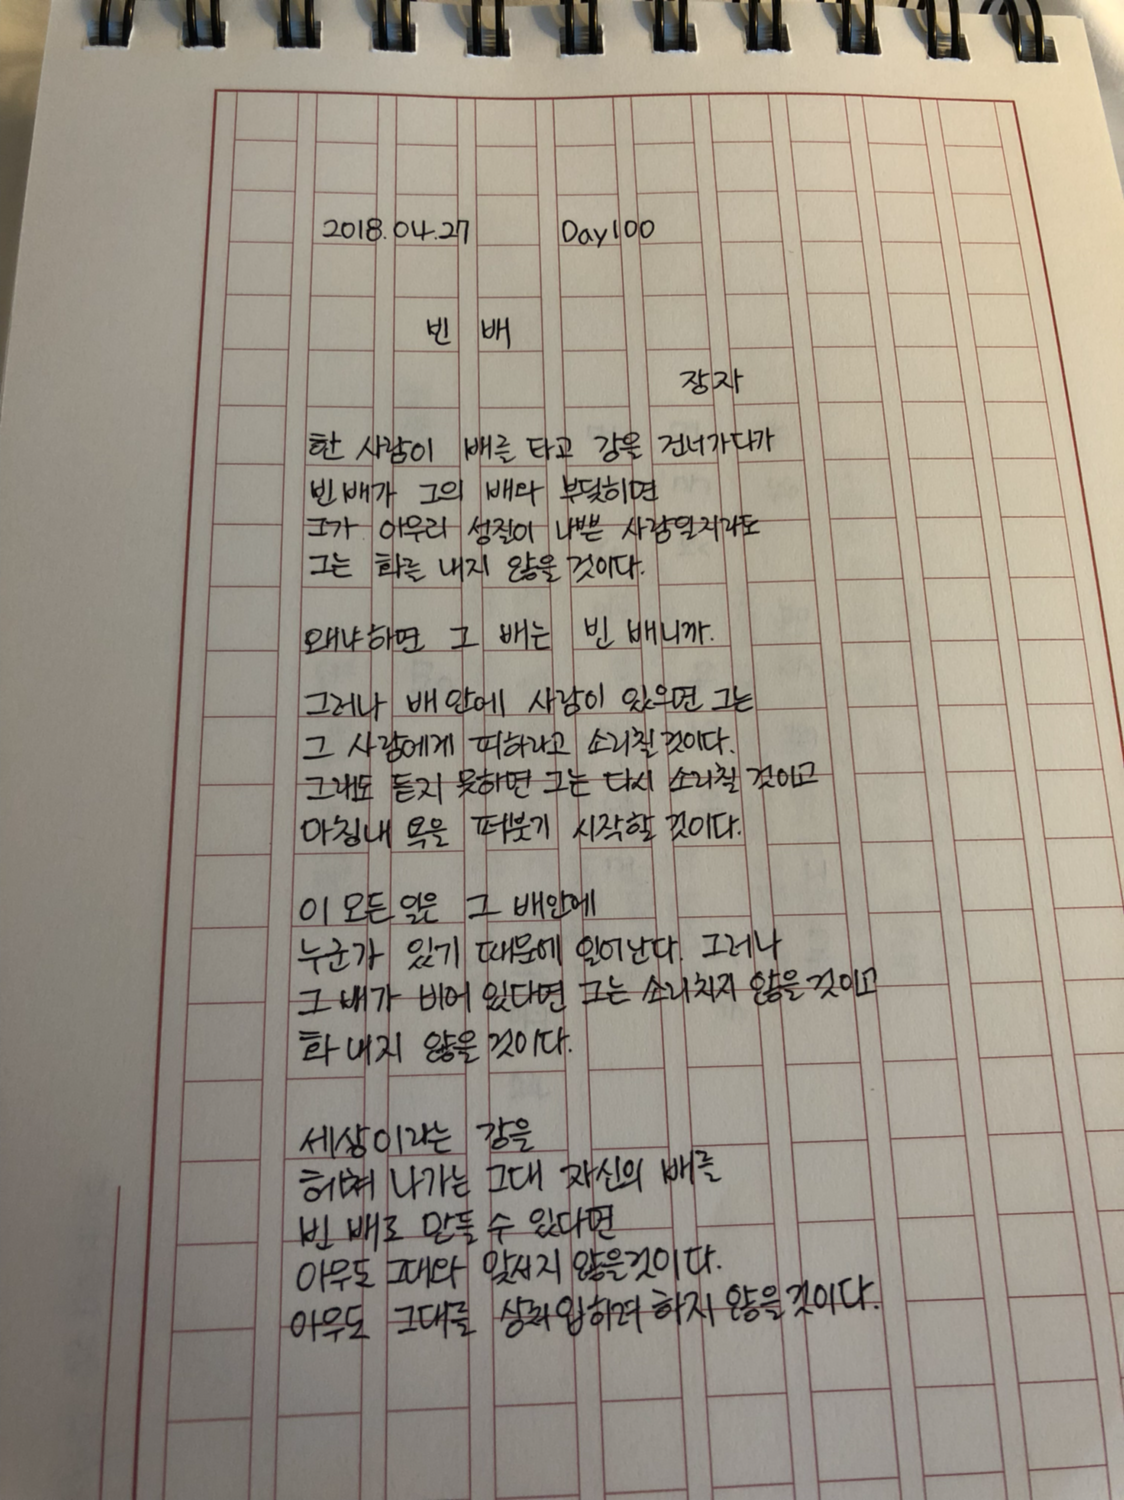 2018.04.27 Day100
빈 배
장자
한 사람이 배를 타고 강을 건너가다가
빈 배가 그의 배와 부딪히면
그가 아무리 성질이 나쁜 사람일지라도
그는 화를 내지 않을 것이다.
왜냐하면 그 배는 빈 배니까.
그러나 배 안에 사람이 있으면 그는
그 사람에게 피하라고 소리칠 것이다.
그래도 듣지 못하면 그는 다시 소리칠 것이고
마침내 욕을 퍼붓기 시작할 것이다.
이 모든 일은 그 배안에
누군가 있기 때문에 일어난다. 그러나
그 배가 비어 있다면 그는 소리치지 않을 것이고
화 내지 않을 것이다.
세상이라는 강을
헤쳐 나가는 그대 자신의 배를
빈 배로 만들 수 있다면
아무도 그대와 맞서지 않을것이다.
아무도 그대를 상처 입히려 하지 않을것이다.